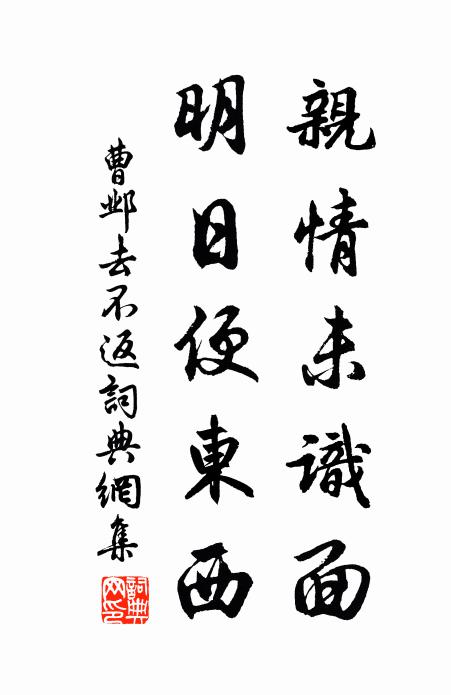 親情未識面
明日便東西
曹邺去不返詞典網集
詞典网印